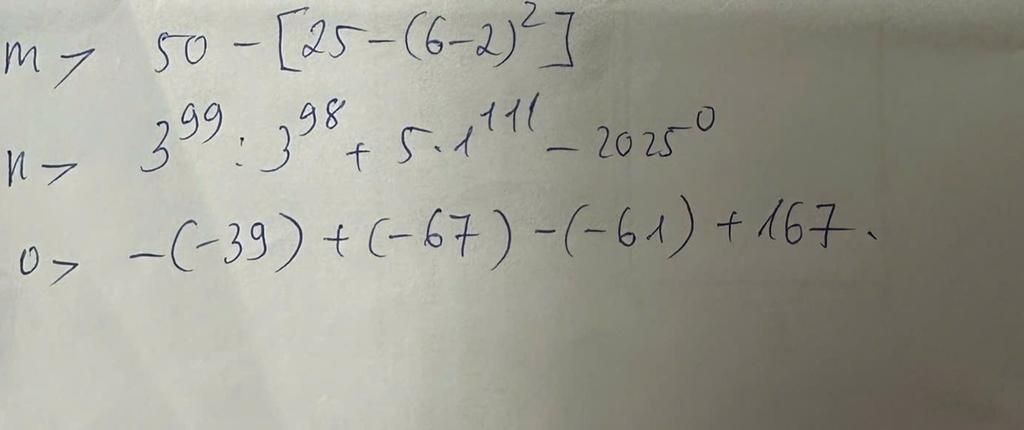 m> 50 - [25 - (6-2)²]
n> 3⁹⁹ : 3⁹⁸ + 5 . 1¹¹¹ - 2025⁰
o> -(-39) + (-67) - (-61) + 167.